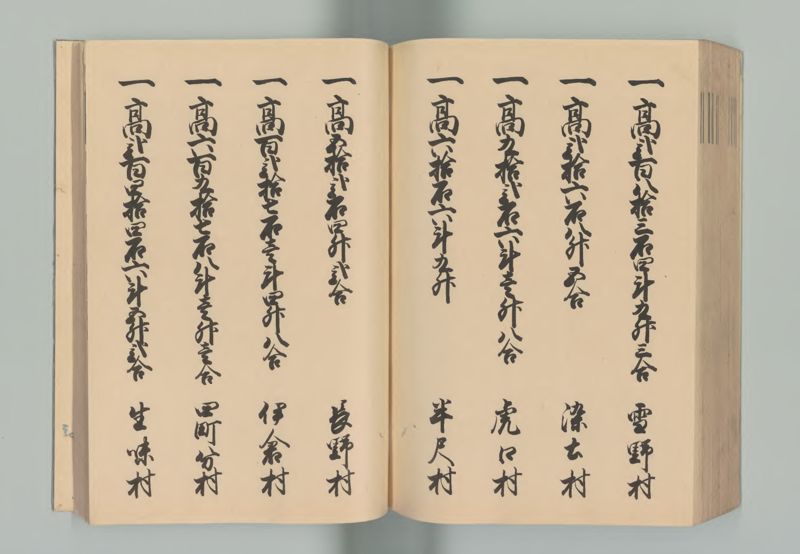 一 高弐百八拾三石四斗九升三合 雪野村
一 高弐拾六石八升五合 染玄村
一 高九拾弐石六斗壱升八合 虎口村
一 高六拾石六斗九升 半尺村
一 高五拾弐石四升弐合 長野村
一 高百弐拾七石壱斗四升八合 伊倉村
一 高六百九拾七石八斗壱升壱合 田町分村
一 高弐百四拾四石六斗五升弐合 生味村